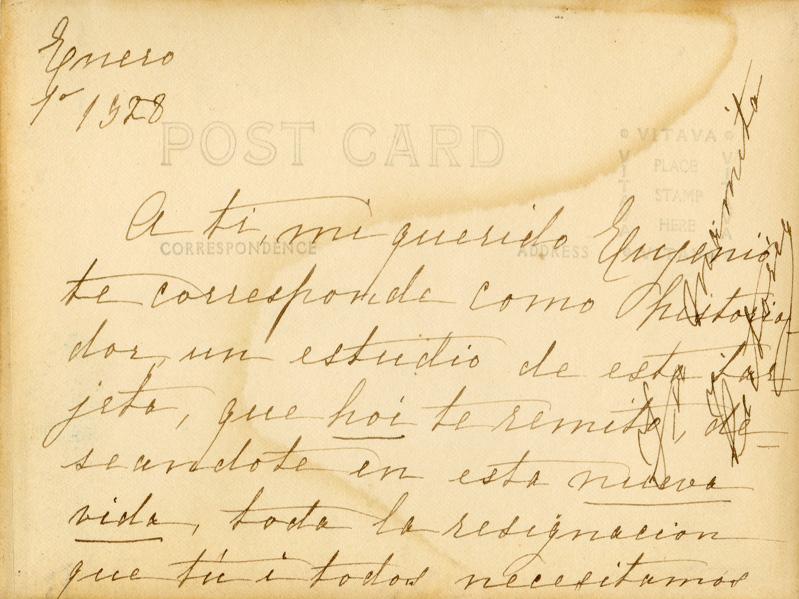 Enero
1º 1928
POST CARD
VITAVA
PLACE
STAMP
HERE
A ti, mi querido Eugenio,
CORRESPONDENCE
ADDRESS
te corresponde como historia-
dor, un estudio de esta tar-
jeta, que hoi te remito, de-
seandote en esta nueva
vida, toda la resignacion
que tú i todos necesitamos